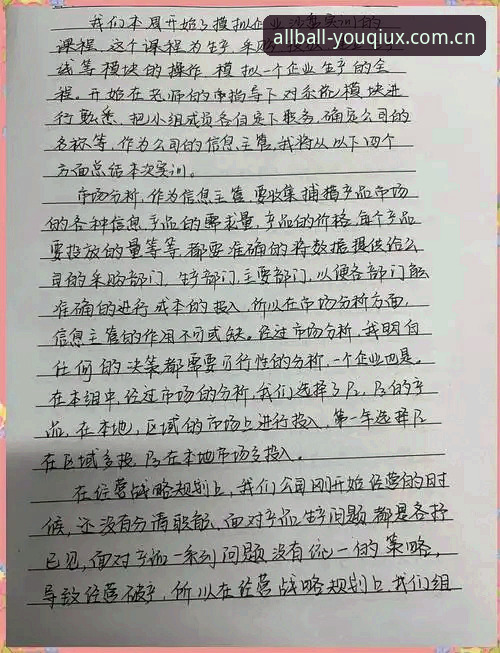 allball-youqiux.com.cn
我们本周开始了模拟企业沙盘实训的
课程。这个课程为生产、采购
线等模块的操作模拟一个企业生产的全
程。开始在老师的带指导下对系统模块进
行熟悉、把小组成员各自定下职务,确定公司的
名称等,作为公司的信息主管,我将从以下四个
方面总结本次实训。
市场分析,作为信息主管,要收集捕捉产品市场
的各种信息,产品的需求量,产品的价格,每个产品
要投放的量等等,都要准确的将数据提供给公
司的采购部门,生产部门,主要部门,以便各部门能
准确的进行成本的投入,所以在市场分析方面,
信息主管的作用不可或缺。经过市场分析,我明白
任何的决策都需要可行性的分析,一个企业也是。
在本组中,经过市场的分析,我们选择了P2、P3的产
品,在本地,区域的市场上进行投入,第一年选择P2
在区域多投,P3在本地市场多投入。
在经营战略规划上,我们公司刚开始经营的时
候,还没有分清职能、面对产品生产问题都是各抒
己见,面对产品一系列问题没有统一的策略,
导致经营破产,所以在经营战略规划上,我们组